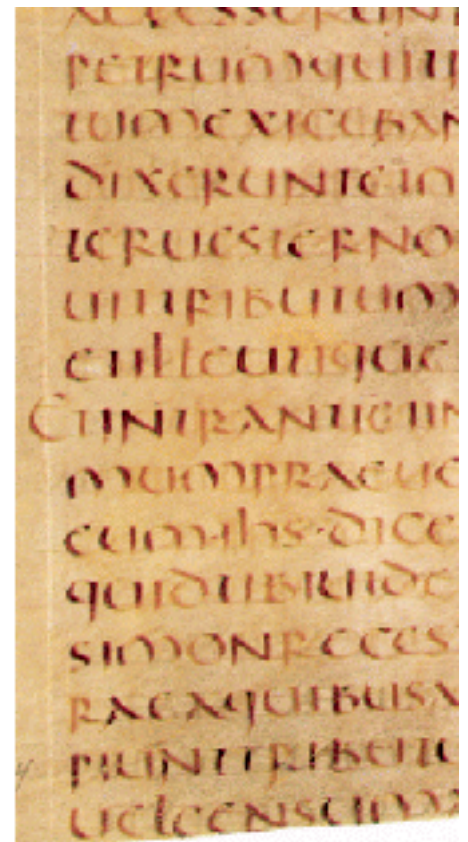 ACCESSERUNT
PETRUMQUITR
TUMEXIGEBAN
DIXERUNTEIM
TERUESTERNO
UITTRIBUTUM
ETILLEUTIQUE
ETINTRANTIEIIN
MUMPRAEUE
EUM·IHS·DICE
QUIDTIBIUIDE
SIMONREGES
RAEAQUIBUSA
PIUNTTRIBUTU
UELCENSUMA